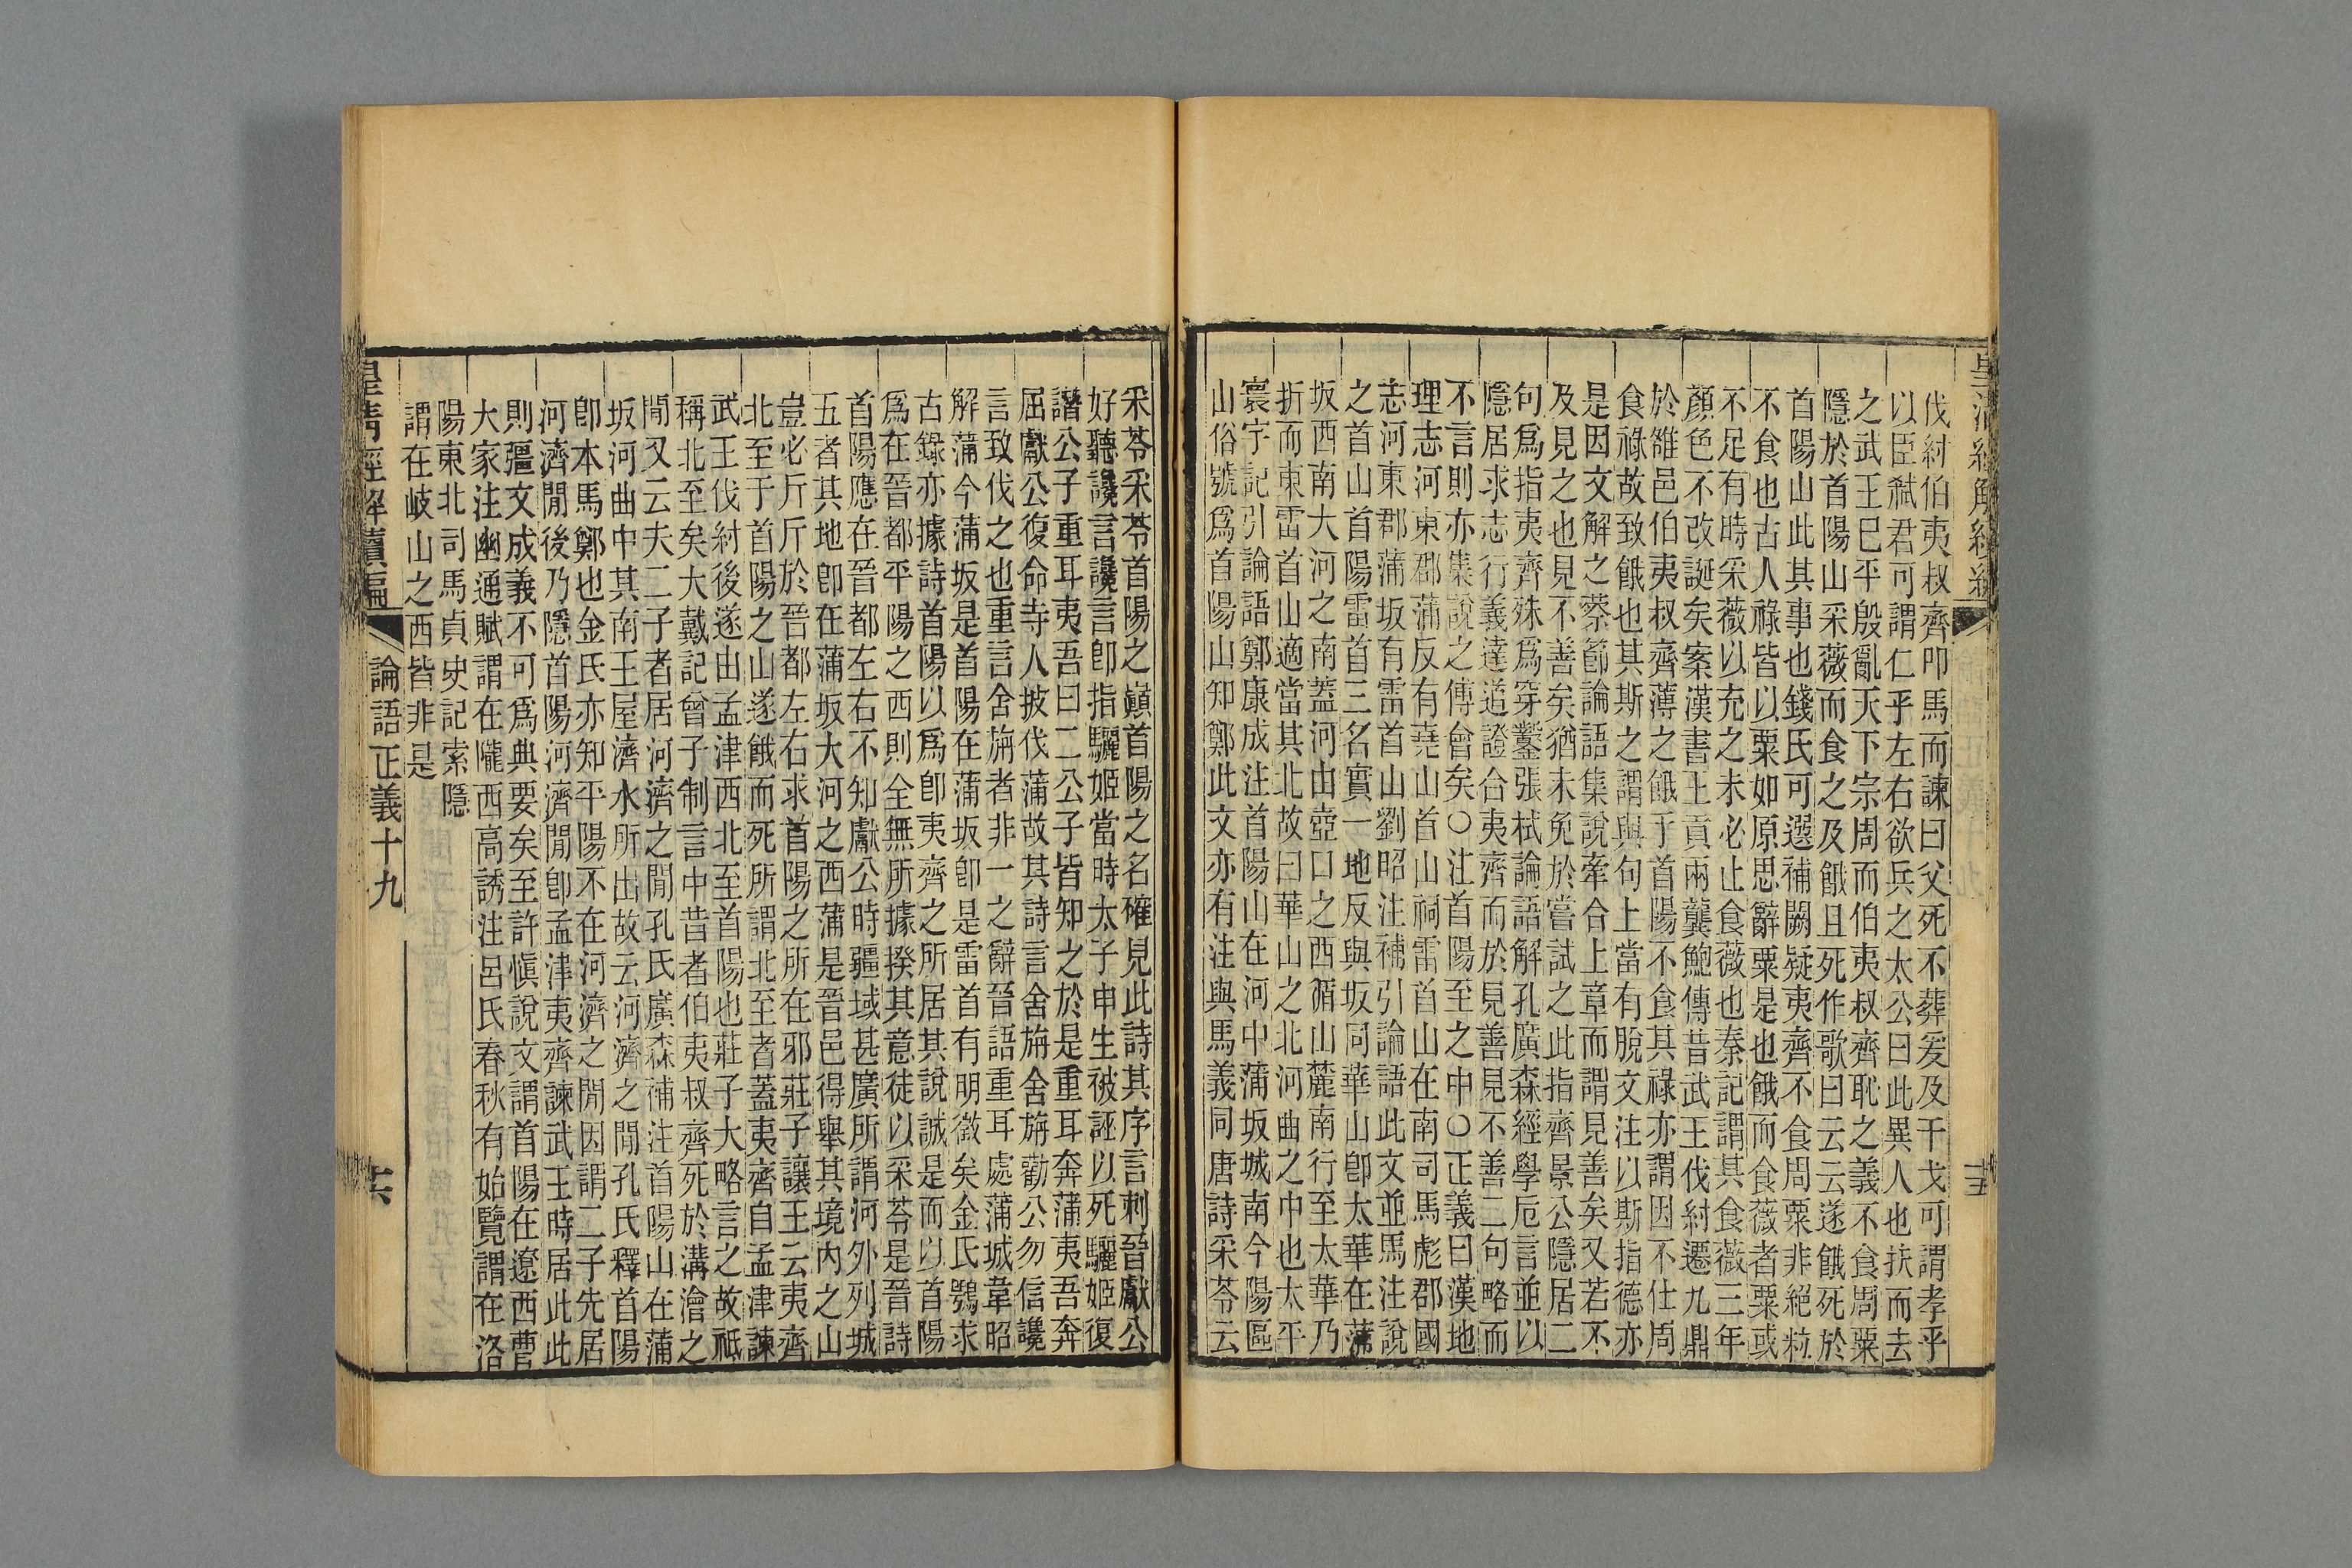 伐紂伯夷叔齊叩馬而諫曰父死不葬爰及干戈可謂孝乎
以臣弒君可謂仁乎左右欲兵之太公曰此異人也扶而去
之武王巳平殷亂天下宗周而伯夷叔齊恥之義不食周粟
隱於首陽山采薇而食之及餓且死作歌曰云云遂餓死於
首陽山此其事也錢氏可選補闕疑夷齊不食周粟非絕粒
不食也古人祿皆以粟如原思辭粟是也餓而食薇者粟或
不足有時采薇以充之未必止食薇也秦記謂其食薇三年
顏色不改誕矣案漢書王貢兩龔鮑傳昔武王伐紂遷九鼎
於雒邑伯夷叔齊薄之餓于首陽不食其祿亦謂因不仕周
食祿故致餓也其斯之謂與句上當有脫文注以斯指德亦
是因文解之蔡節論語集說牽合上章而謂見善矣又若不
及見之也見不善矣猶未免於嘗試之此指齊景公隱居二
句爲指夷齊殊爲穿鑿張栻論語解孔廣森經學卮言並以
隱居求志行義達道證合夷齊而於見善見不善二句略而
不言則亦集說之傅會矣○注首陽至之中○正義曰漢地
理志河東郡蒲反有堯山首山祠雷首山在南司馬彪郡國
志河東郡蒲坂有雷首山劉昭注補引論語此文並馬注說
之首山首陽雷首三名實一地反與坂同華山卽太華在蒲
坂西南大河之南蓋河由壺口之西循山麓南行至太華乃
折而東雷首山適當其北故曰華山之北河曲之中也太平
寰宇記引論語鄭康成注首陽山在河中蒲坂城南今陽區
山俗號爲首陽山知鄭此文亦有注與馬義同唐詩采苓云
采苓采苓首陽之巓首陽之名確見此詩其序言刺晉獻公
好聽讒言讒言卽指驪姬當時太子申生被誣以死驪姬復
譖公子重耳夷吾曰二公子皆知之於是重耳奔蒲夷吾奔
屈獻公復命寺人披伐蒲故其詩言舍旃舍旃勸公勿信讒
言致伐之也重言舍旃者非一之辭晉語重耳處蒲城韋昭
解蒲今蒲坂是首陽在蒲坂卽是雷首有明徵矣金氏鶚求
古錄亦據詩首陽以爲卽夷齊之所居其說誠是而以首陽
爲在晉都平陽之西則全無所據揆其意徒以采苓是晉詩
首陽應在晉都左右不知獻公時疆域甚廣所謂河外列城
五者其地卽在蒲坂大河之西蒲是晉邑得舉其境內之山
豈必斤斤於晉都左右求首陽之所在邪莊子讓王云夷齊
北至于首陽之山遂餓而死所謂北至者蓋夷齊自孟津諫
武王伐紂後遂由孟津西北至首陽也莊子大略言之故祇
稱北至矣大戴記曾子制言中昔者伯夷叔齊死於溝澮之
閒又云夫二子者居河濟之閒孔氏廣森補注首陽山在蒲
坂河曲中其南王屋濟水所出故云河濟之閒孔氏釋首陽
卽本馬鄭也金氏亦知平陽不在河濟之閒因謂二子先居
河濟閒後乃隱首陽河濟閒卽孟津夷齊諫武王時居此此
則彊文成義不可爲典要矣至許愼說文謂首陽在遼西曹
大家注幽通賦謂在隴西高誘注呂氏春秋有始覽謂在洛
陽東北司馬貞史記索隱
謂在岐山之西皆非是
皇清經解續編 論語正義十九